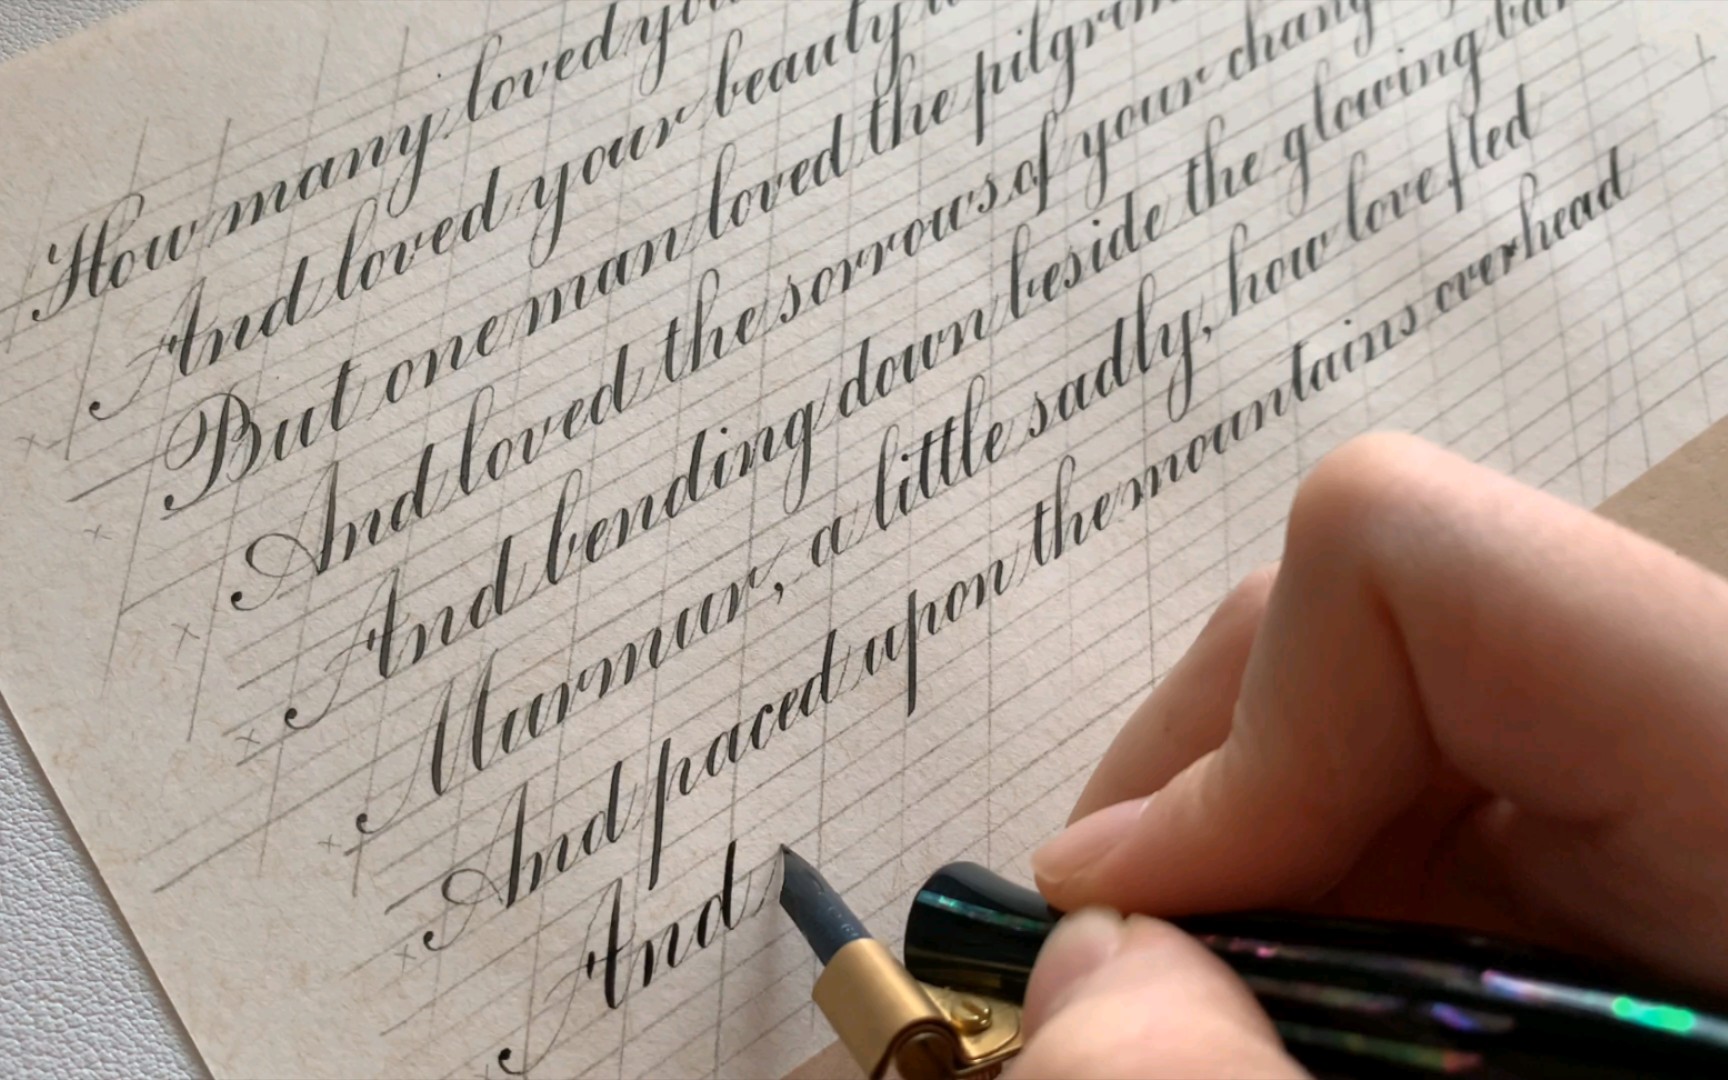 How many loved you
And loved your beauty
But one man loved the pilgrim
And loved the sorrows of your chang
And bending down beside the glowing bar
Murmur, a little sadly, how love fled
And paced upon the mountains overhead
And